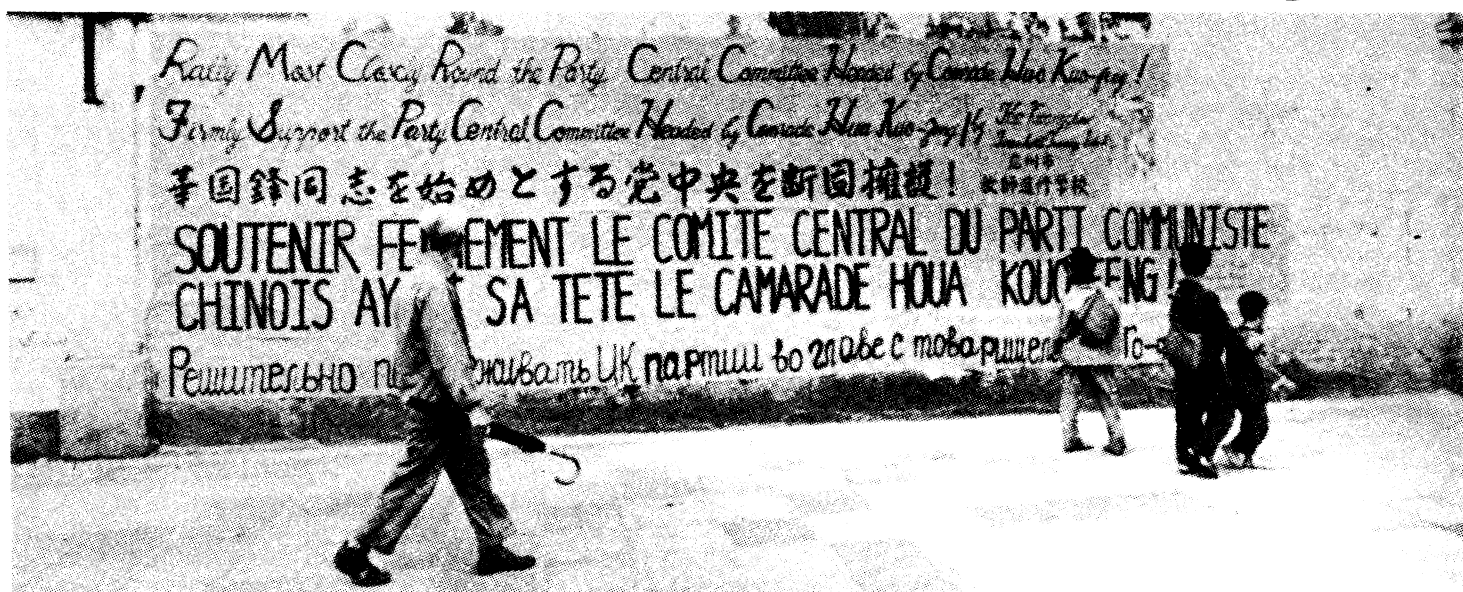 Rally Most Closely Round the Party Central Committee Headed by Comrade Hua Kuo-feng!
Firmly Support the Party Central Committee Headed by Comrade Hua Kuo-feng! by The Kwangchow
広州市
教師進修学校
華国鋒同志を始めとする党中央を断固擁護!
SOUTENIR FE EMENT LE COMITE CENTRAL DU PARTI COMMUNISTE
CHINOIS AY T SA TETE LE CAMARADE HOUA KOUO FENG!
Решительно п живать ЦК партии во главе с товарищем Го-